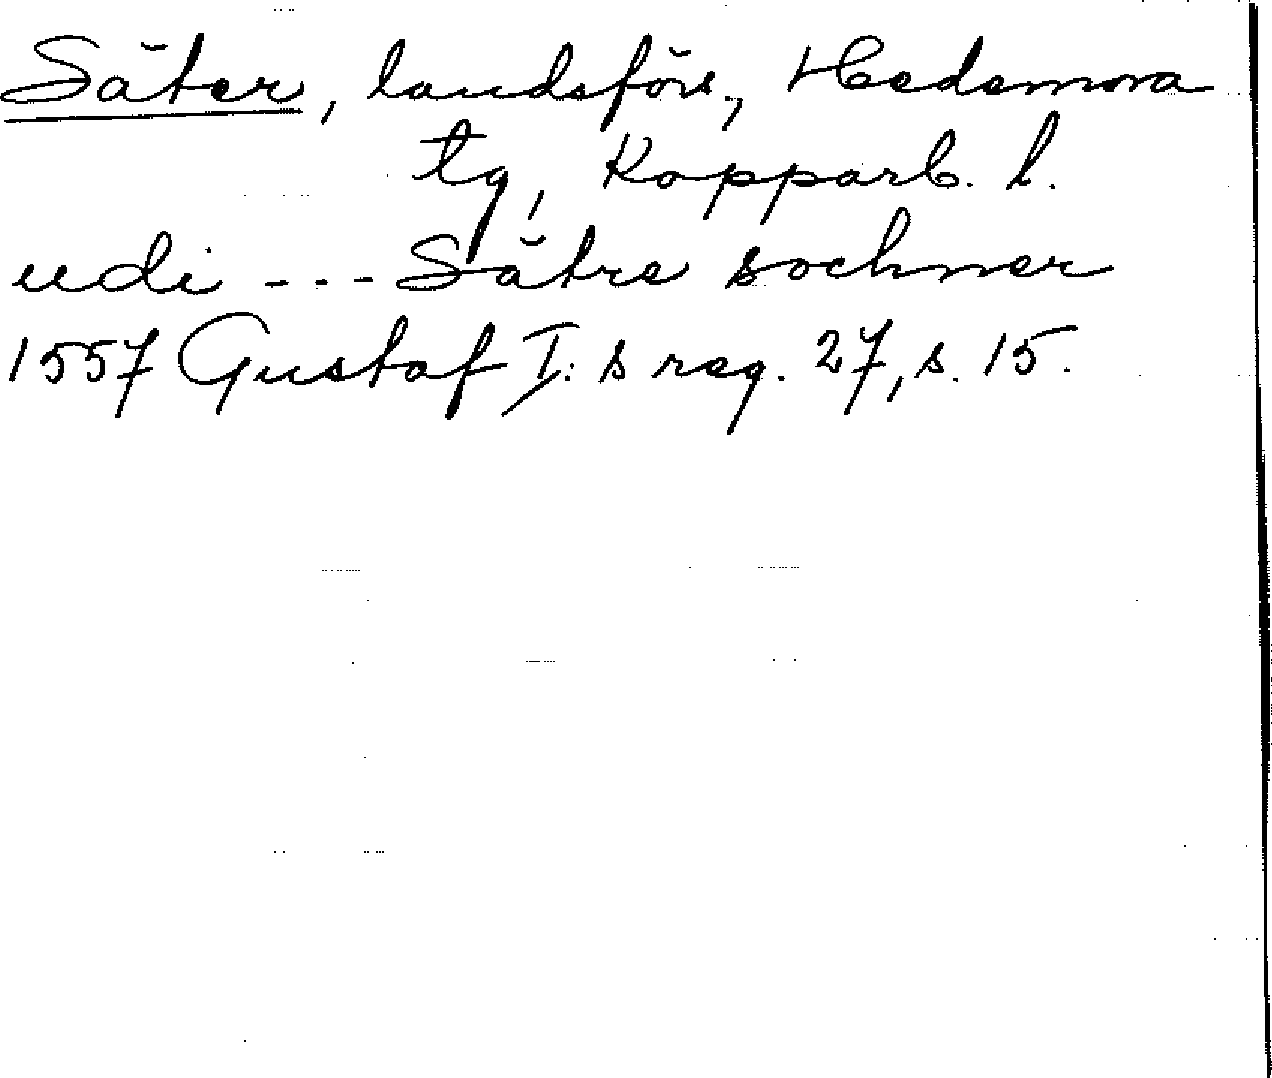 Säter, landsförs., Hedemora
tg, Kopparb. l.
udi --- Sätre sochner
1557 Gustaf I:s reg. 27, s. 15.